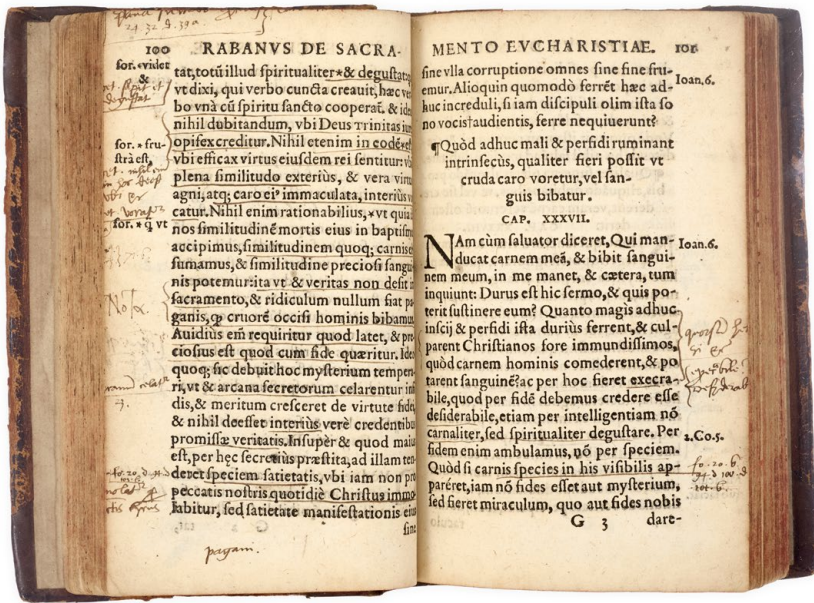 100 RABANVS DE SACRA-
for. videt
&
tat, totũ illud spiritualiter*& degustat
vt dixi, qui verbo cuncta creauit, hæc ver
bo vnà cũ spiritu sancto cooperat. & ide
nihil dubitandum, vbi Deus Trinitas
opifex creditur. Nihil etenim in eodẽ
for. * fru-
strà est,
vbi efficax virtus eiusdem rei sentitur: vbi
plena similitudo exterius, & vera
agni, atq; caro ei⁹ immaculata, interiùs
catur. Nihil enim rationabilius, *vt quia
for. * q̃ vt
nos similitudinẽ mortis eius in baptism
accipimus, similitudinem quoq; carnis
sumamus, & similitudine preciosi sangui
nis potemur: ita vt & veritas non desit
sacramento, & ridiculum nullum fiat pa
ganis, q̃ cruorẽ occisi hominis bibamus
Nota
Auidius em̃ requiritur quod latet, & pre
ciosius est quod cum fide quæritur. Ideo
quoq; sic debuit hoc mysterium tempe
ri, vt & arcana secretorum celarentur
dis, & meritum cresceret de virtute fidei
& nihil deesset interiùs verè credentibus
promissæ veritatis. Insupèr & quod maius
est, per hęc secretiùs præstita, ad illam
deret speciem satietatis, vbi iam non pro
peccatis nostris quotidiè Christus immo
labitur, sed satietate manifestationis eius
sine
pagani.
MENTO EVCHARISTIAE. 101
sine vlla corruptione omnes sine fine fru-
emur. Alioquin quomodò ferrẽt hæc ad-
Ioan. 6.
huc increduli, si iam discipuli olim ista so
no vocis†audientis, ferre nequiuerunt?
¶Quòd adhuc mali & perfidi ruminant
intrinsecùs, qualiter fieri possit vt
cruda caro voretur, vel san-
guis bibatur.
CAP. XXXVII.
NAm cùm saluator diceret, Qui man-
Ioan. 6.
ducat carnem meã, & bibit sangui-
nem meum, in me manet, & cætera, tum
inquiunt: Durus est hic sermo, & quis po-
terit sustinere eum? Quanto magis adhuc
inscij & perfidi ista duriùs ferrent, & cul-
parent Christianos fore immundissimos,
quòd carnem hominis comederent, & po
tarent sanguinẽ? ac per hoc fieret execra-
bile, quod per fidẽ debemus credere esse
desiderabile, etiam per intelligentiam nõ
carnaliter, sed spiritualiter degustare. Per
2. Co. 5.
fidem enim ambulamus, nõ per speciem.
Quòd si carnis species in his visibilis ap-
paréret, iam nõ fides esset aut mysterium,
sed fieret miraculum, quo aut fides nobis
G 3 dare-